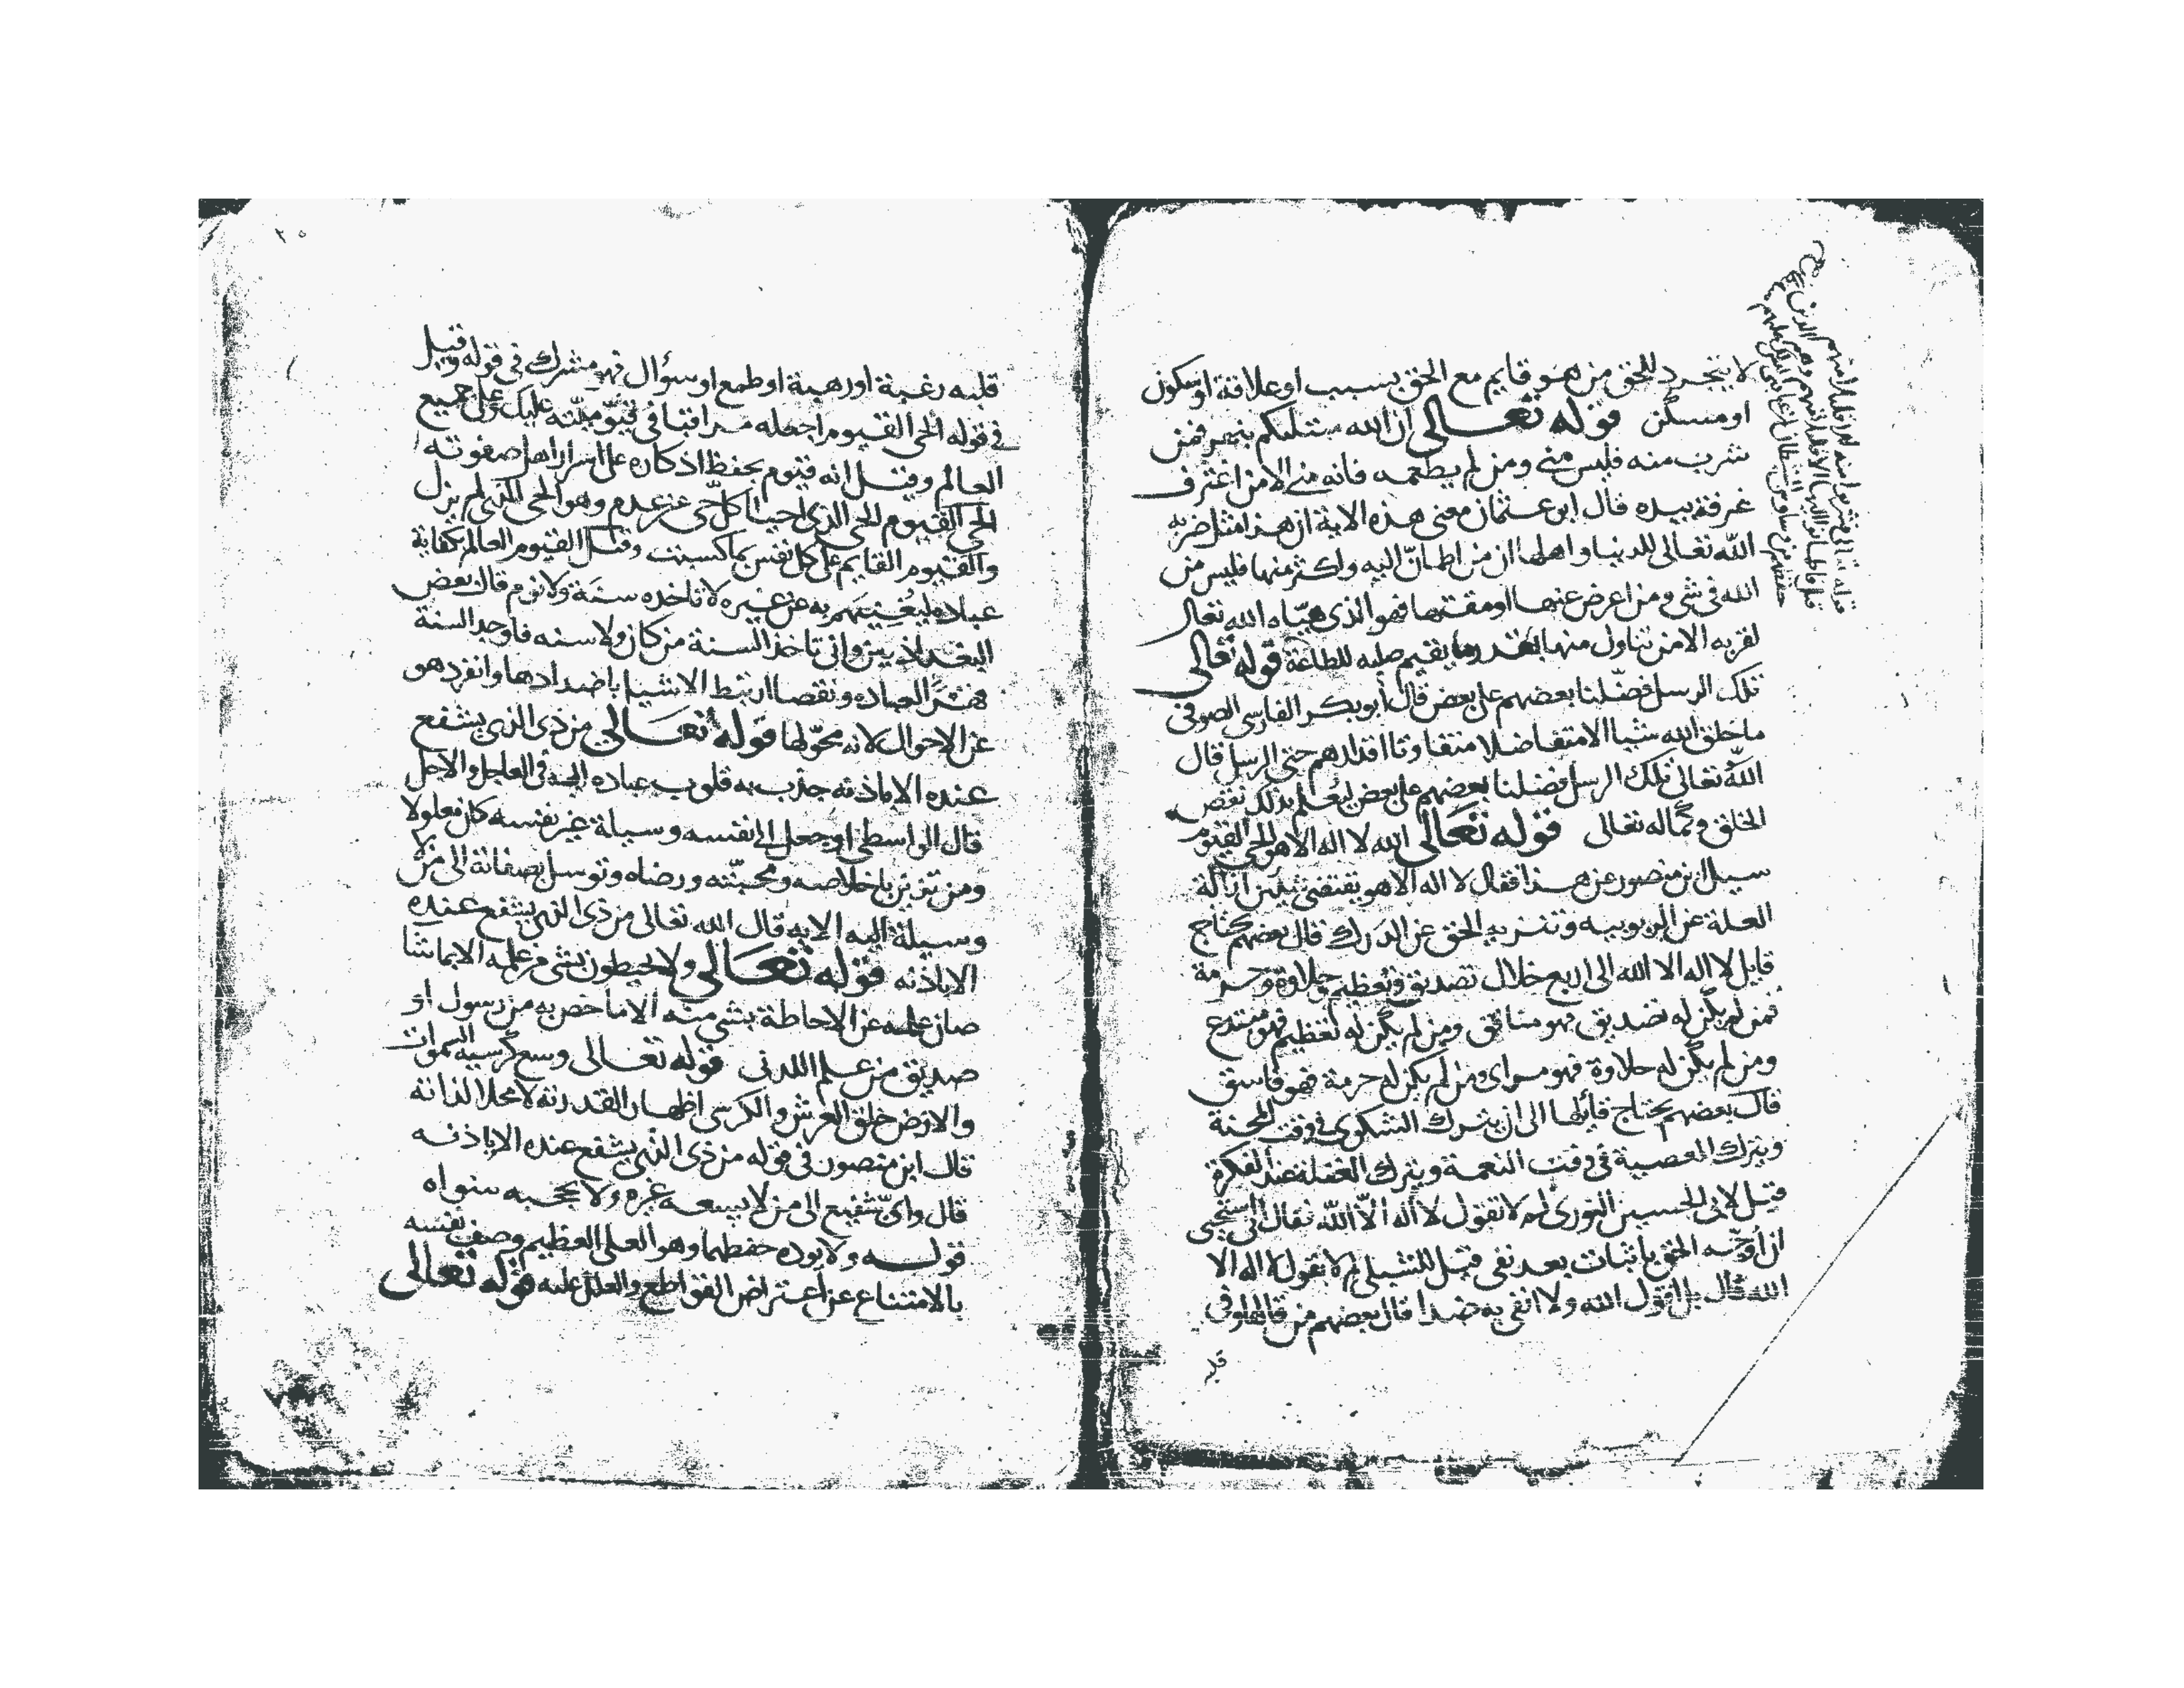 لا يتجرد للحق من هو قايم مع الحق بسبب او علاقة او سكون
او مسكن قوله تعالى ان الله مبتليكم بنهر فمن
شرب منه فليس مني ومن لم يطعمه فانه مني الا من اغترف
غرفة بيده قال ابن عثمان معنى هذه الاية ان هذا مثل ضربه
الله تعالى للدنيا واهلها ان من اطمانّ اليه واكثر منها فليس من
الله في شي ومن اعرض عنها او مقتها فهو الذي هيّاه الله تعالى
لقربه الا من تناول منها بقدر ما يقيم صلبه للطاعة قوله تعالى
تلك الرسل فضّلنا بعضهم على بعض قال أبو بكر الفارسي الصوفي
ما خلق الله شيا الا متفاضلا متفاوتا اقدارهم حتى الرسل قال
الله تعالى تلك الرسل فضلنا بعضهم على بعض ليعلم بذلك نقص
الخلق وكماله تعالى قوله تعالى الله لا اله الا هو الحي القيوم
سيل ابن منصور عن هذا فقال لا اله الا هو يقتضي شيين ازالة
العلة عن الربوبيه وتنزيه الحق عن الدرك قال بعضهم يحتاج
قايل لا اله الا الله الى اربع خلال تصديق وتعظيم وحلاوة وحرمة
فمن لم يكن له تصديق فهو منافق ومن لم يكن له تعظيم فهو مبتدع
ومن لم يكن له حلاوة فهو مراى ومن لم يكن له حرمة فهو فاسق
قال بعضهم يحتاج قايلها الى ان يترك الشكوى في وقت المحنة
ويترك المعصية في وقت النعمة ويترك الغفلة عند الفكرة
قيل لابي الحسين النوري لم لا تقول لا اله الا الله فقال اني استحيي
ان أوجّه الحق باثبات بعد نفي قيل للشبلي لم لا تقول لا اله الا
الله فقال بل اقول الله ولا انفي به ضدا قال بعضهم من قالها وفي
قلبه
قلبه رغبة او رهبة او طمع او سؤال فهو مشرك في قوله وقيل
في قوله الحي القيوم اجعله مراقبا في قيّوميّته عليك وعلى جميع
العالم وقيل انه قيوم بحفظ اذكاره على اسرار اهل صفوته
الحي القيوم الحي الذي احيا كل حي عن عدم وهو الحي الذي لم يزل
والقيوم القايم على كل نفس بما كسبت وقيل القيوم العالم بكفاية
عباده ليغنيهم به عن غيره لا تاخذه سنة ولا نوم قال بعض
البغداديين وانى تاخذ السنة من كان ولا سنه فاوجد السنة
العباده ونقصا ارتبط الاشيا باضدادها وانفرد هو
عن الاحوال لانه محوّلها قوله تعالى من ذى الذي يشفع
عنده الا باذنه جذب به قلوب عباده اليه في العاجل والاجل
قال الواسطي لو جعل الى نفسه وسيلة غير نفسه كان معلولا
ومن تزين باخلاصه ومحبّته ورضاه وتوسل بصفاته الى من لا
وسيلة اليه الا به قال الله تعالى من ذى الذي يشفع عنده
الا باذنه قوله تعالى ولا يحيطون بشي من علمه الا بما شا
صان علمه عن الاحاطة بشي منه الا ما خص به من رسول او
صديق من علم اللدنى قوله تعالى وسع كرسيه السموات
والارض خلق العرش والكرسي اظهارا لقدرته لا محلا لذاته
قال ابن منصور في قوله من ذى الذي يشفع عنده الا باذنه
قال واىّ شفيع الى من لا يسعه غيره ولا يحجبه سواه
قوله ولا يوده حفظهما وهو العلي العظيم وصف نفسه
بالامتناع عن اعتراض القواطع والعلل عليه قوله تعالى